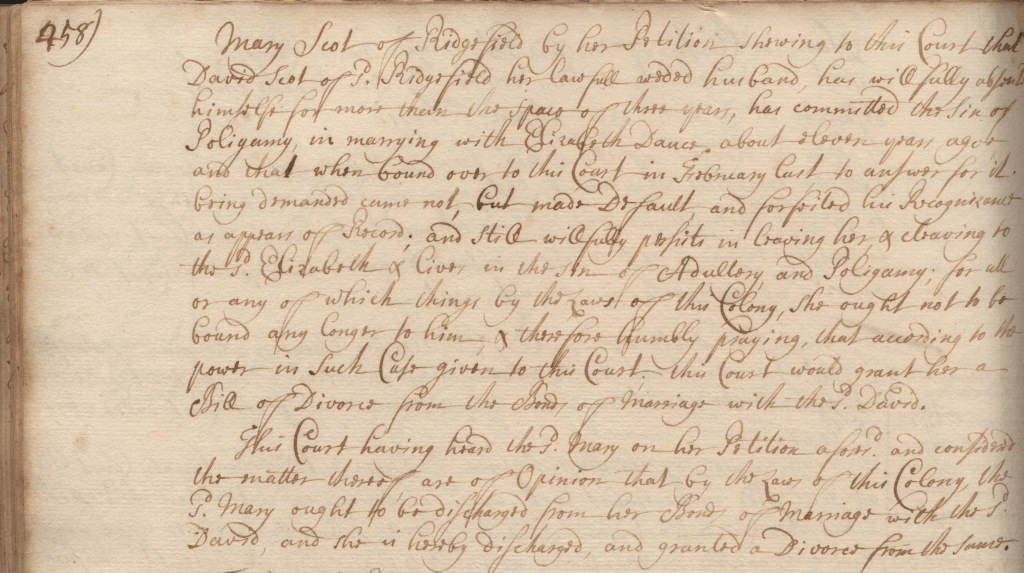 458)
Mary Scot of Ridgefield by her Petition shewing to this Court that
David Scot of sd. Ridgefield her lawfull weded husband, has willfully absent
himself for more than the space of three years, has committed the sin of
Poligamy, in marrying with Elizabeth Dance, about eleven years agoe
and that when bound over to this Court in February last to answer for it.
being demanded came not, but made Default, and forfeited his Recognizance
as appears of Record; and still willfully persists in leaving her & cleaving to
the sd. Elizabeth & lives in the sin of Adultery, and Poligamy; for all
or any of which things by the Laws of this Colony, she ought not to be
bound any longer to him, & therefore humbly praying, that according to the
power in such Case given to this Court. this Court would grant her a
Bill of Divorce from the Bonds of Marriage with the sd. David.
This Court having heard the sd. Mary on her Petition aforsd. and considered
the matter thereof are of Opinion that by the Laws of this Colony, the
sd. Mary ought to be discharged from her Bonds of Marriage with the sd.
David, and she is hereby discharged, and granted a Divorce from the same.